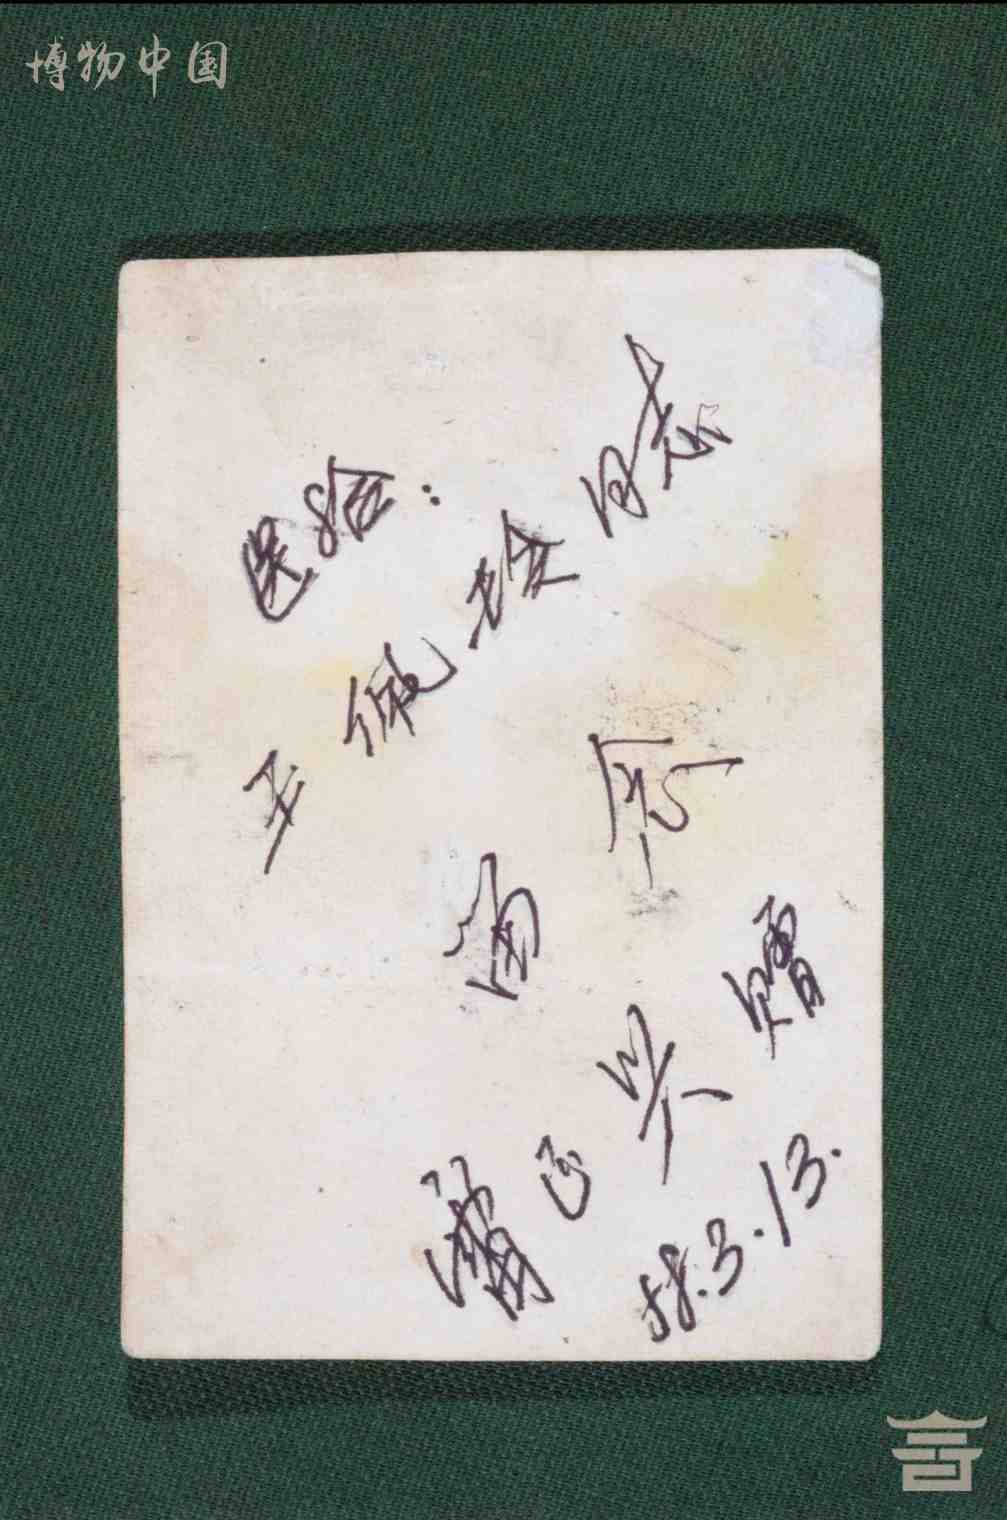 博物中国
送给:
王佩同志
留念
蒲兴赠
58.3.13.